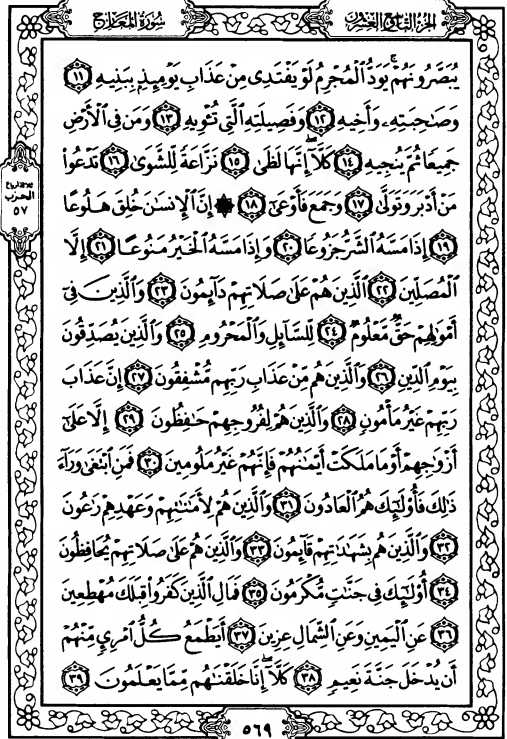 سُورَةُ المَعَارِجِ الجُزْءُ التَّاسِعُ وَالعِشْرُونَ
يُبَصَّرُونَهُمْ ۚ يَوَدُّ ٱلْمُجْرِمُ لَوْ يَفْتَدِى مِنْ عَذَابِ يَوْمِئِذٍۭ بِبَنِيهِ ١١
وَصَٰحِبَتِهِۦ وَأَخِيهِ ١٢ وَفَصِيلَتِهِ ٱلَّتِى تُـْٔوِيهِ ١٣ وَمَن فِى ٱلْأَرْضِ
جَمِيعًا ثُمَّ يُنجِيهِ ١٤ كَلَّآ ۖ إِنَّهَا لَظَىٰ ١٥ نَزَّاعَةً لِّلشَّوَىٰ ١٦ تَدْعُوا۟
مَنْ أَدْبَرَ وَتَوَلَّىٰ ١٧ وَجَمَعَ فَأَوْعَىٰٓ ١٨ ۞ إِنَّ ٱلْإِنسَٰنَ خُلِقَ هَلُوعًا
١٩ إِذَا مَسَّهُ ٱلشَّرُّ جَزُوعًا ٢٠ وَإِذَا مَسَّهُ ٱلْخَيْرُ مَنُوعًا ٢١ إِلَّا
ٱلْمُصَلِّينَ ٢٢ ٱلَّذِينَ هُمْ عَلَىٰ صَلَاتِهِمْ دَآئِمُونَ ٢٣ وَٱلَّذِينَ فِىٓ
أَمْوَٰلِهِمْ حَقٌّ مَّعْلُومٌ ٢٤ لِّلسَّآئِلِ وَٱلْمَحْرُومِ ٢٥ وَٱلَّذِينَ يُصَدِّقُونَ
بِيَوْمِ ٱلدِّينِ ٢٦ وَٱلَّذِينَ هُم مِّنْ عَذَابِ رَبِّهِم مُّشْفِقُونَ ٢٧ إِنَّ عَذَابَ
رَبِّهِمْ غَيْرُ مَأْمُونٍ ٢٨ وَٱلَّذِينَ هُمْ لِفُرُوجِهِمْ حَٰفِظُونَ ٢٩ إِلَّا عَلَىٰٓ
أَزْوَٰجِهِمْ أَوْ مَا مَلَكَتْ أَيْمَٰنُهُمْ فَإِنَّهُمْ غَيْرُ مَلُومِينَ ٣٠ فَمَنِ ٱبْتَغَىٰ وَرَآءَ
ذَٰلِكَ فَأُو۟لَٰٓئِكَ هُمُ ٱلْعَادُونَ ٣١ وَٱلَّذِينَ هُمْ لِأَمَٰنَٰتِهِمْ وَعَهْدِهِمْ رَٰعُونَ
٣٢ وَٱلَّذِينَ هُم بِشَهَٰدَٰتِهِمْ قَآئِمُونَ ٣٣ وَٱلَّذِينَ هُمْ عَلَىٰ صَلَاتِهِمْ يُحَافِظُونَ
٣٤ أُو۟لَٰٓئِكَ فِى جَنَّٰتٍ مُّكْرَمُونَ ٣٥ فَمَالِ ٱلَّذِينَ كَفَرُوا۟ قِبَلَكَ مُهْطِعِينَ
٣٦ عَنِ ٱلْيَمِينِ وَعَنِ ٱلشِّمَالِ عِزِينَ ٣٧ أَيَطْمَعُ كُلُّ ٱمْرِئٍ مِّنْهُمْ
أَن يُدْخَلَ جَنَّةَ نَعِيمٍ ٣٨ كَلَّآ ۖ إِنَّا خَلَقْنَٰهُم مِّمَّا يَعْلَمُونَ ٣٩
الحزب
٥٧
٥٦٩